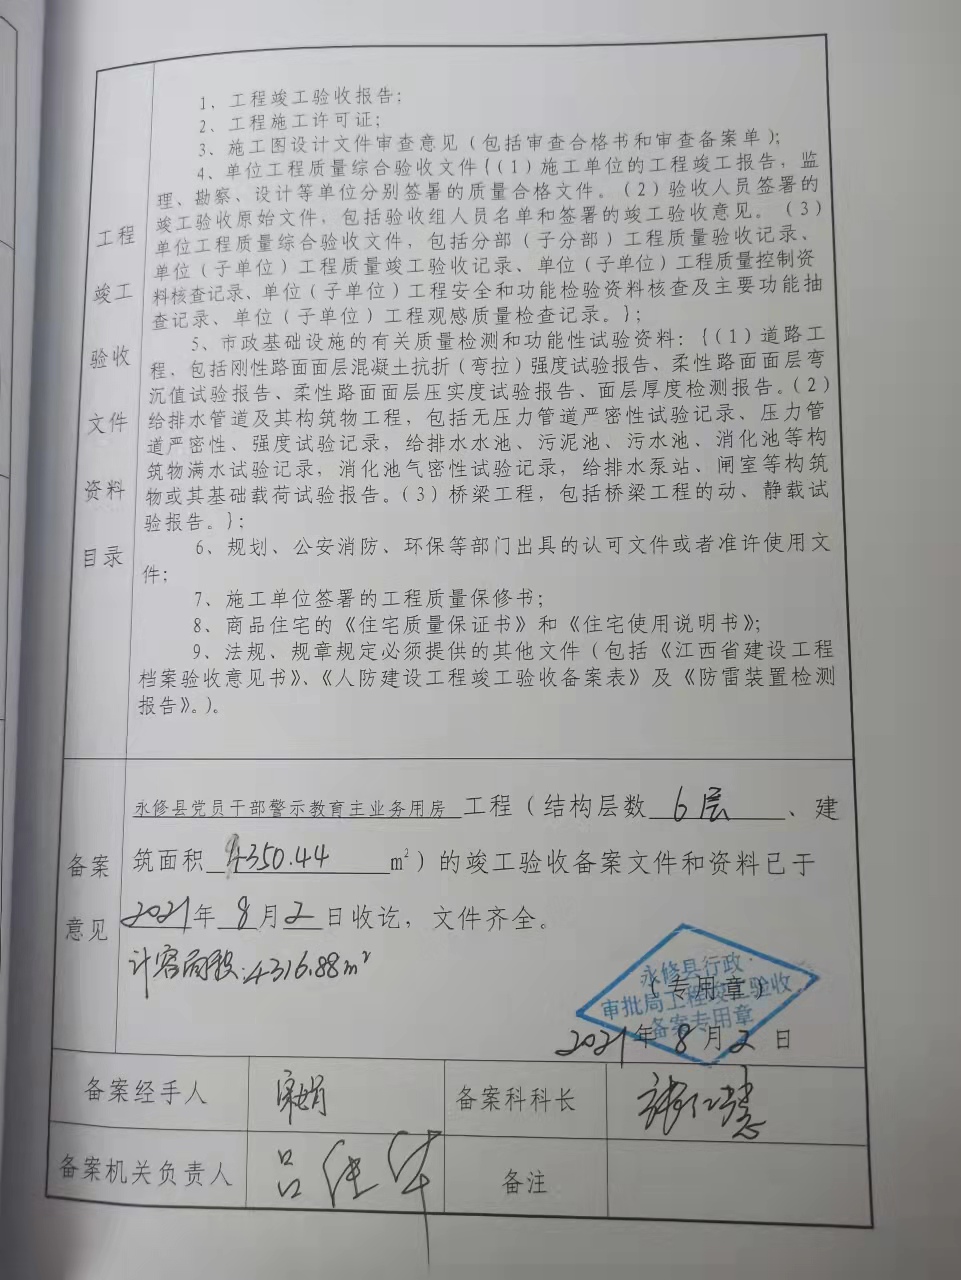 1、工程竣工验收报告；
2、工程施工许可证；
3、施工图设计文件审查意见（包括审查合格书和审查备案单）；
4、单位工程质量综合验收文件{（1）施工单位的工程竣工报告，监
理、勘察、设计等单位分别签署的质量合格文件。（2）验收人员签署的
竣工验收原始文件，包括验收组人员名单和签署的竣工验收意见。（3）
单位工程质量综合验收文件，包括分部（子分部）工程质量验收记录、
单位（子单位）工程质量竣工验收记录、单位（子单位）工程质量控制资
料核查记录、单位（子单位）工程安全和功能检验资料核查及主要功能抽
查记录、单位（子单位）工程观感质量检查记录。}；
5、市政基础设施的有关质量检测和功能性试验资料：{（1）道路工
程、包括刚性路面面层混凝土抗折（弯拉）强度试验报告、柔性路面面层弯
沉值试验报告、柔性路面面层压实度试验报告、面层厚度检测报告。（2）
给排水管道及其构筑物工程，包括无压力管道严密性试验记录、压力管
道严密性、强度试验记录，给排水水池、污泥池、污水池、消化池等构
筑物满水试验记录，消化池气密性试验记录，给排水泵站、闸室等构筑
物或其基础载荷试验报告。（3）桥梁工程，包括桥梁工程的动、静载试
验报告。}；
6、规划、公安消防、环保等部门出具的认可文件或者准许使用文
件；
7、施工单位签署的工程质量保修书；
8、商品住宅的《住宅质量保证书》和《住宅使用说明书》；
9、法规、规章规定必须提供的其他文件（包括《江西省建设工程
档案验收意见书》、《人防建设工程竣工验收备案表》及《防雷装置检测
报告》。）。
工程
竣工
验收
文件
资料
目录
备案
意见
永修县党员干部警示教育主业务用房工程（结构层数 6层 、建
筑面积 4350.44 m²）的竣工验收备案文件和资料已于
2021年 8月2日收讫，文件齐全。
计容面积:4316.88m²
永修县行政
审批局工程竣工验收
备案专用章
（专用章）
2021年 8月2日
备案经手人
备案科科长
备案机关负责人
备注